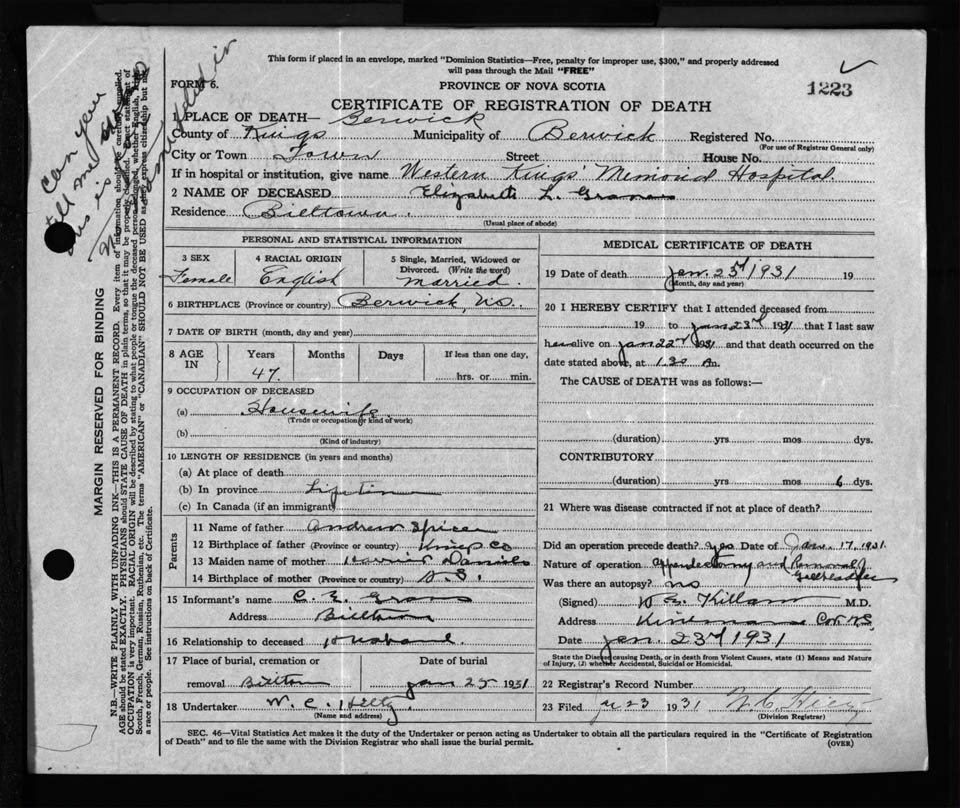 This form if placed in an envelope, marked "Dominion Statistics—Free, penalty for improper use, $300," and properly addressed
will pass through the Mail "FREE"
FORM 6.
PROVINCE OF NOVA SCOTIA
1223
CERTIFICATE OF REGISTRATION OF DEATH
1 PLACE OF DEATH— Berwick
County of Kings Municipality of Berwick Registered No.
(For use of Registrar General only)
City or Town Town Street House No.
If in hospital or institution, give name Western Kings Memorial Hospital.
2 NAME OF DECEASED Elizabeth L.
Residence
(Usual place of abode)
PERSONAL AND STATISTICAL INFORMATION
3 SEX
Female
4 RACIAL ORIGIN
English
5 Single, Married, Widowed or
Divorced. (Write the word)
married.
6 BIRTHPLACE (Province or country) Berwick, N.S.
7 DATE OF BIRTH (month, day and year)
8 AGE IN
Years Months Days If less than one day,
47. hrs. or min.
9 OCCUPATION OF DECEASED
(a) Housewife
(Trade or occupation or kind of work)
(b)
(Kind of industry)
10 LENGTH OF RESIDENCE (in years and months)
(a) At place of death
(b) In province Lifetime
(c) In Canada (if an immigrant)
Parents
11 Name of father Andrew Spicer
12 Birthplace of father (Province or country) Kings Co
13 Maiden name of mother Daniels
14 Birthplace of mother (Province or country)
15 Informant's name C. E.
Address
16 Relationship to deceased Husband.
17 Place of burial, cremation or Date of burial
removal Jan 25 1931
18 Undertaker W. C.
(Name and address)
MEDICAL CERTIFICATE OF DEATH
19 Date of death Jan. 23rd 1931 19
(Month, day and year)
20 I HEREBY CERTIFY that I attended deceased from
19 to Jan 23rd 1931 that I last saw
her alive on Jan 22nd 1931 and that death occurred on the
date stated above, at 1.30 A.
The CAUSE of DEATH was as follows:—
(duration) yrs mos dys.
CONTRIBUTORY
(duration) yrs mos 6 dys.
21 Where was disease contracted if not at place of death?
Did an operation precede death? yes Date of Jan. 17, 1931
Nature of operation Appendectomy and Removal of
Gallbladder
Was there an autopsy? no
(Signed) Killam M.D.
Address N.S.
Date Jan. 23rd 1931
State the Disease causing Death, or in death from Violent Causes, state (1) Means and Nature
of Injury, (2) whether Accidental, Suicidal or Homicidal.
22 Registrar's Record Number
23 Filed 23 1931
(Division Registrar)
SEC. 46—Vital Statistics Act makes it the duty of the Undertaker or person acting as Undertaker to obtain all the particulars required in the "Certificate of Registration
of Death" and to file the same with the Division Registrar who shall issue the burial permit.
(OVER)
MARGIN RESERVED FOR BINDING
N.B.—WRITE PLAINLY WITH UNFADING INK—THIS IS A PERMANENT RECORD. Every item of information should be carefully supplied.
AGE should be stated EXACTLY. PHYSICIANS should STATE CAUSE OF DEATH in plain terms, so that it may be properly classified. Exact statement of
OCCUPATION is very important. RACIAL ORIGIN will be described by stating to what people or tongue the deceased person belonged, whether English, Irish,
Scotch, French, German, Russian, Ruthenian, etc. The terms "AMERICAN" or "CANADIAN" SHOULD NOT BE USED as they express citizenship but not
a race or people. See instructions on back of Certificate.
Can you
tell me
this is